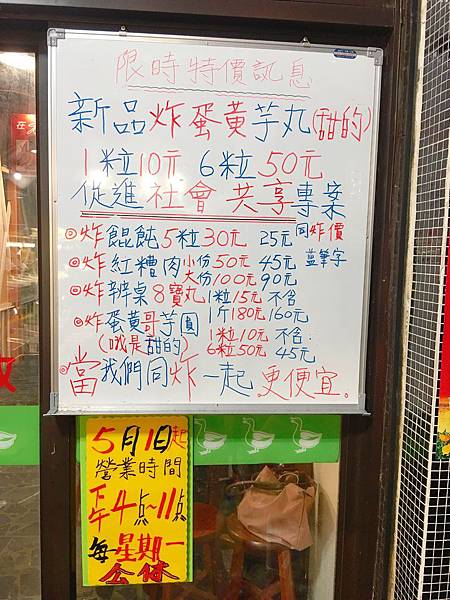 限時特價訊息
新品炸蛋黃芋丸(甜的)
1粒10元 6粒50元
促進社會共享專案
◎炸餛飩5粒30元 25元 同炸價
◎炸紅糟肉小份50元 45元 藍筆字
大份100元 90元
◎炸辦桌8寶丸1粒15元 不含
1斤180元 160元
◎炸蛋黃哥芋圓 1粒10元 不含.
(哦是甜的) 6粒50元 45元
◎當我們同炸一起 更便宜。
5月1日起
營業時間
下午4点~11点
每星期一
公休